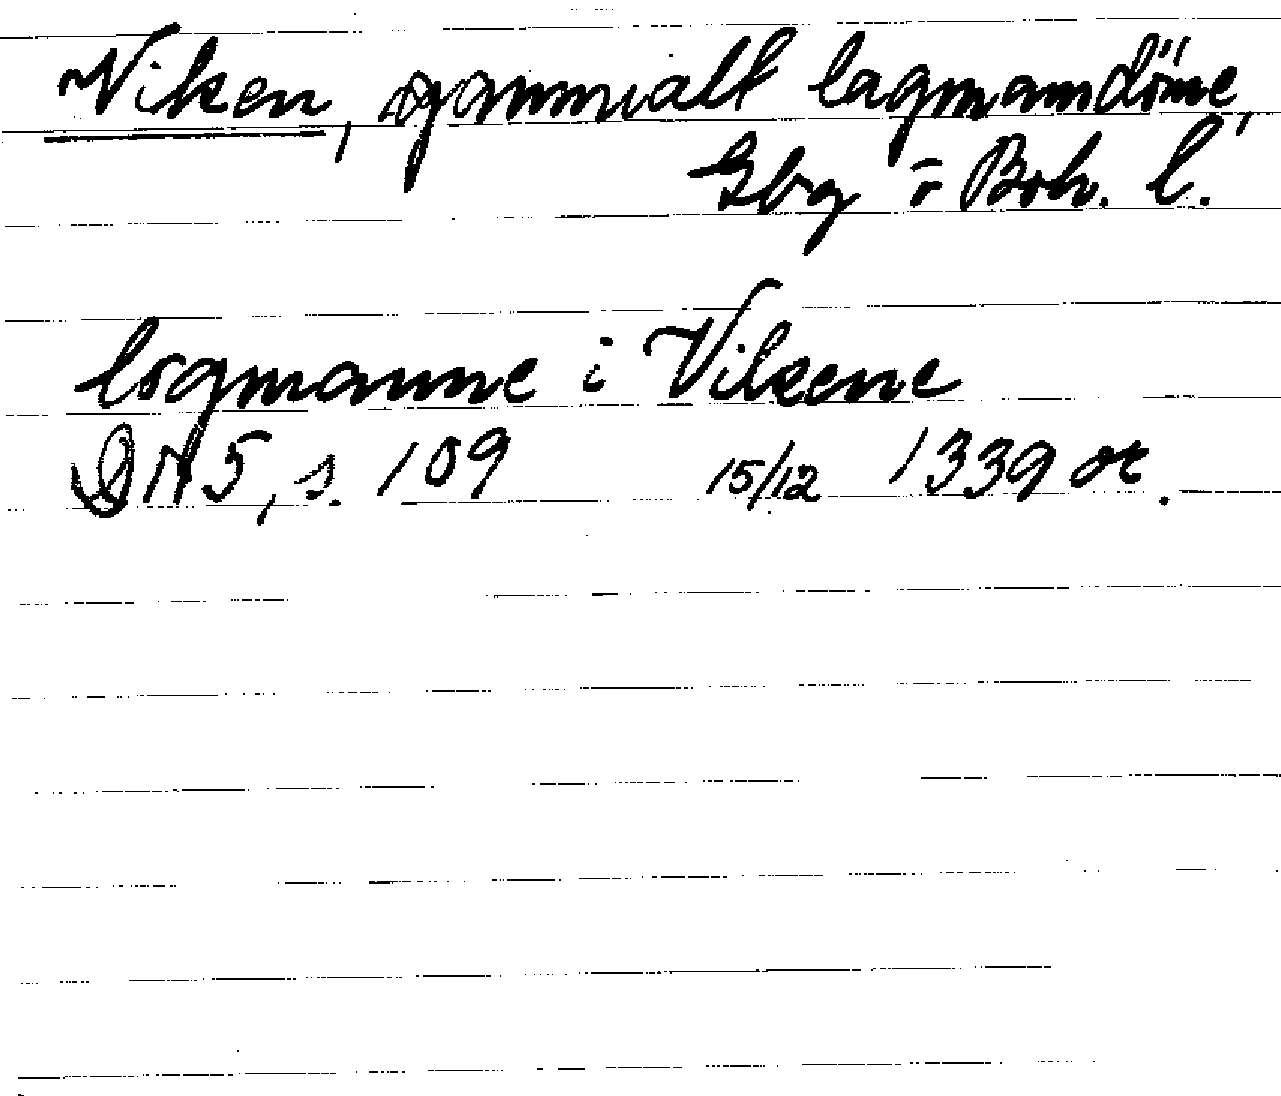 Viken, gammalt lagmansdöme,
Gbg o Boh. l.
logmanne i Vikene
DN 5, s. 109 15/12 1339 or.